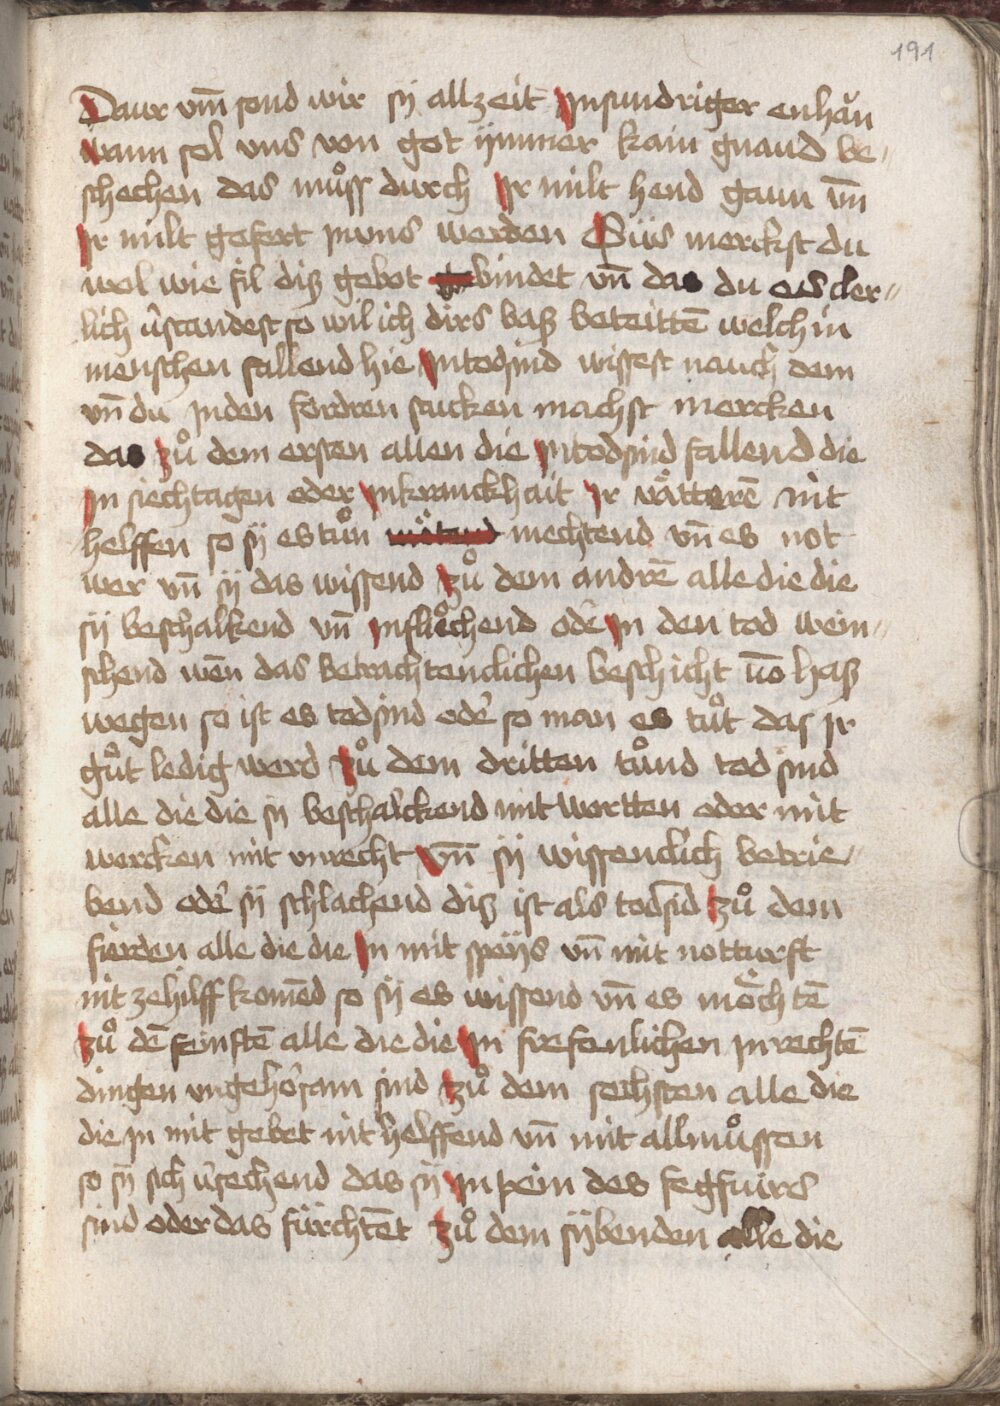 191
Daur vm̄ send wir sÿ allzeit Jnsundriger enhăn
wann sol vns von got ÿmmer kain gnaud be〃
schechen das můss durch Jr milt hend gaun vn̄
Jr milt gefert Jnuns werden Süs merckst du
wol wie fil disz gebot bindet vn̄ das du es cler〃
lich v̂standest so wil ich dirs basz beteittē welch in
menschen fallend hie Jntodsind wissest nauch dem
vn̄ du Jnden fordren stucken machst mercken
das zů dem ersten allen die Jntodsind fallend die
Jn siechtagen oder Jnkranckhait Jr vättterē nit
helffen so sÿ es tůn mechtend vn̄ es not
wer vn̄ sÿ das wissend zů dem andrē alle die die
sÿ beschalkend vn̄ Jnflůchend odē Jn den tod wein〃
schend wēn das betrachtenclichen beschicht vō hasz
wegen so ist es todsind odē so man es tůt das Jr
gůt ledig werd zů dem dritten tůnd todsind
alle die die sÿ beschalckend mit wortten oder mit
wercken mit vnrecht vn̄ sÿ wissenclich betrie〃
bend odē sÿ schlachend disz ist als todsīd zů dem
fierden alle die die Jn mit speÿs vn̄ mit notturft
nit zehilff komēd so sÿ es wissend vn̄ es möchtē
zů dē feinftē alle die die Jn frefenlichen Jnrechtē
dingen vngehôsam sind zů dem sechsten alle die
die Jn mit gebet nit helffend vn̄ mit allmůssen
so sÿ sich v̂sechend das sÿ Jn pein des fegfuirs
sind oder das fürchtēt zů dem sÿbenden alle die